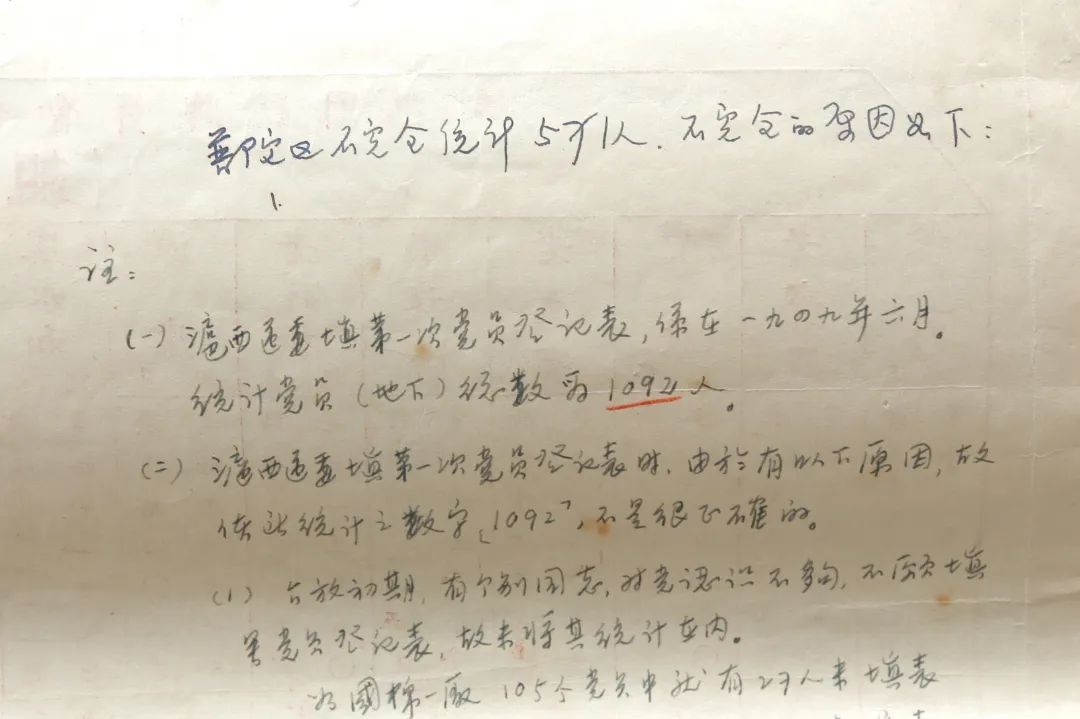 普陀区不完全统计571人.不完全的原因如下:
1.
注:
(一)滬西區委填第一次党员登记表,係在一九四九年六月。
统计党员(地下)總数爲1092人。
(二)滬西區委填第一次党员登记表时,由於有以下原因,故
使此统计之数字「1092」,不是很正确的。
(1)台放初期,有个别同志,对党認识不够,不願填
写党员登记表,故未将其统计在内。
如國棉一廠105个党员中就有27人未填表